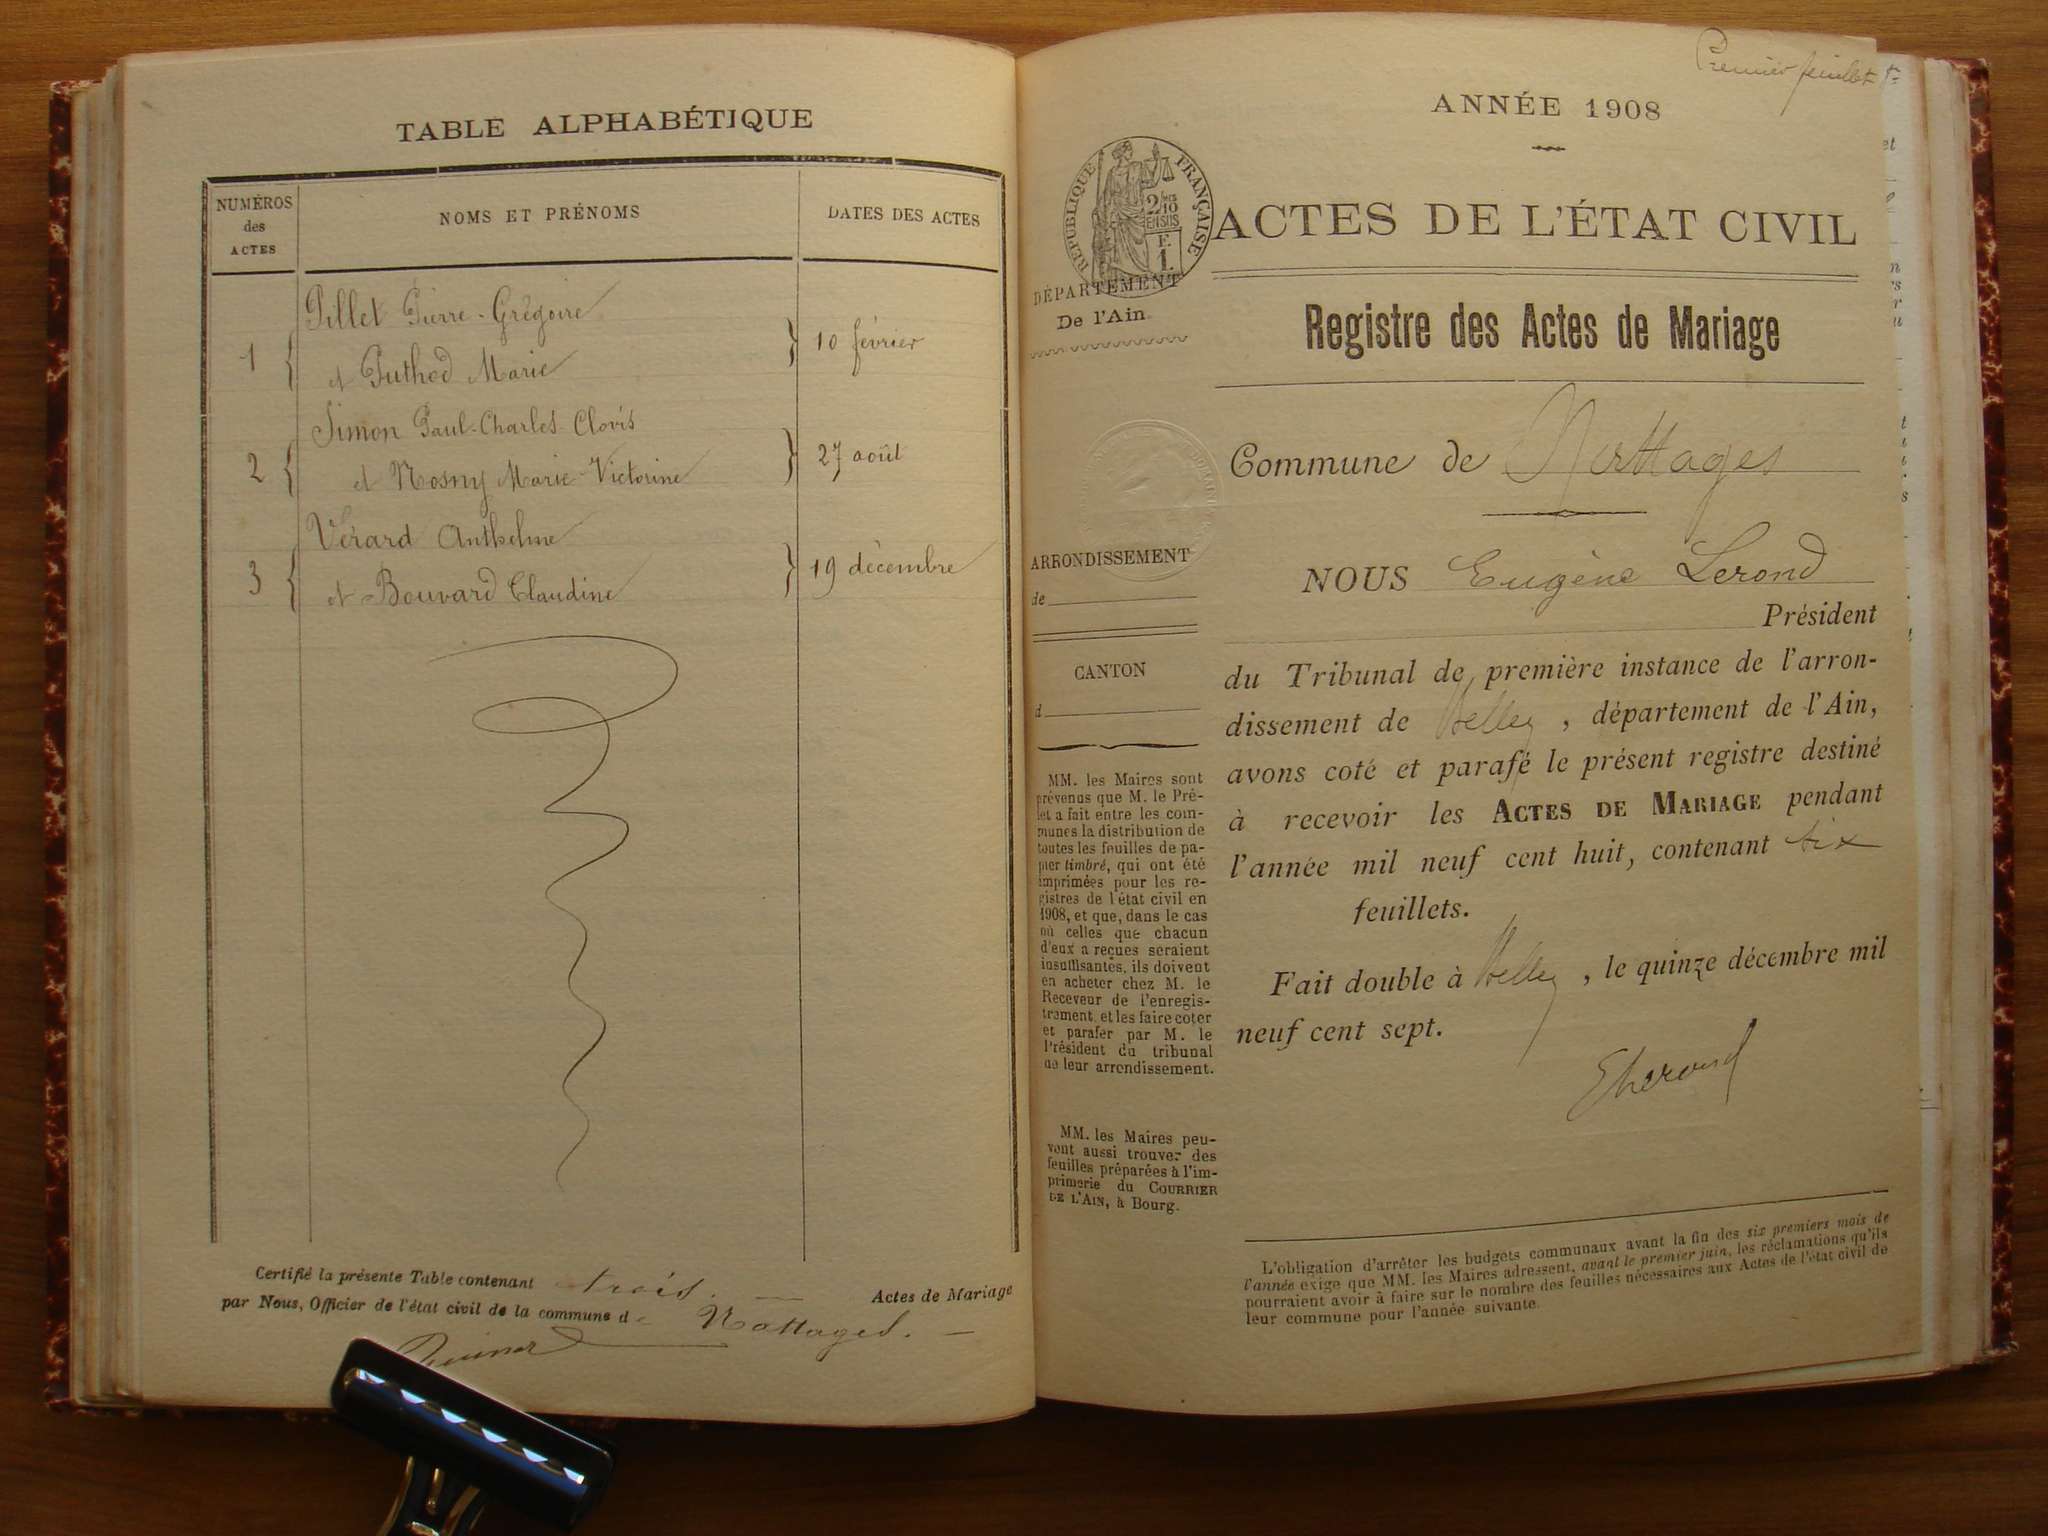 TABLE ALPHABÉTIQUE
NUMÉROS
des
ACTES
NOMS ET PRÉNOMS
DATES DES ACTES
Pillet Pierre-Grégoire
1 { et Puthod Marie } 10 février
Simon Paul-Charles-Clovis
2 { et Rosny Marie-Victorine } 27 août
Vérard Anthelme
3 { et Bouvard Claudine } 19 décembre
Certifié la présente Table contenant trois. — Actes de Mariage
par Nous, Officier de l'état civil de la commune de Nattages. —
Premier feuillet
ANNÉE 1908
RÉPUBLIQUE FRANÇAISE
2/10
EN SUS
F.
1.
ACTES DE L'ÉTAT CIVIL
DÉPARTEMENT
De l'Ain
Registre des Actes de Mariage
Commune de Nattages
NOUS Eugène Lerond
Président
du Tribunal de première instance de l'arron-
dissement de Belley, département de l'Ain,
avons coté et parafé le présent registre destiné
à recevoir les ACTES DE MARIAGE pendant
l'année mil neuf cent huit, contenant six
feuillets.
Fait double à Belley, le quinze décembre mil
neuf cent sept.
ELerond
ARRONDISSEMENT
de
CANTON
d
MM. les Maires sont
prévenus que M. le Pré-
fet a fait entre les com-
munes la distribution de
toutes les feuilles de pa-
pier timbré, qui ont été
imprimées pour les re-
gistres de l'état civil en
1908, et que, dans le cas
où celles que chacun
d'eux a reçues seraient
insuffisantes, ils doivent
en acheter chez M. le
Receveur de l'enregis-
trement, et les faire coter
et parafer par M. le
Président du tribunal
de leur arrondissement.
MM. les Maires peu-
vent aussi trouver des
feuilles préparées à l'im-
primerie du COURRIER
DE L'AIN, à Bourg.
L'obligation d'arrêter les budgets communaux avant la fin des six premiers mois de
l'année exige que MM. les Maires adressent, avant le premier juin, les réclamations qu'ils
pourraient avoir à faire sur le nombre des feuilles nécessaires aux Actes de l'état civil de
leur commune pour l'année suivante.